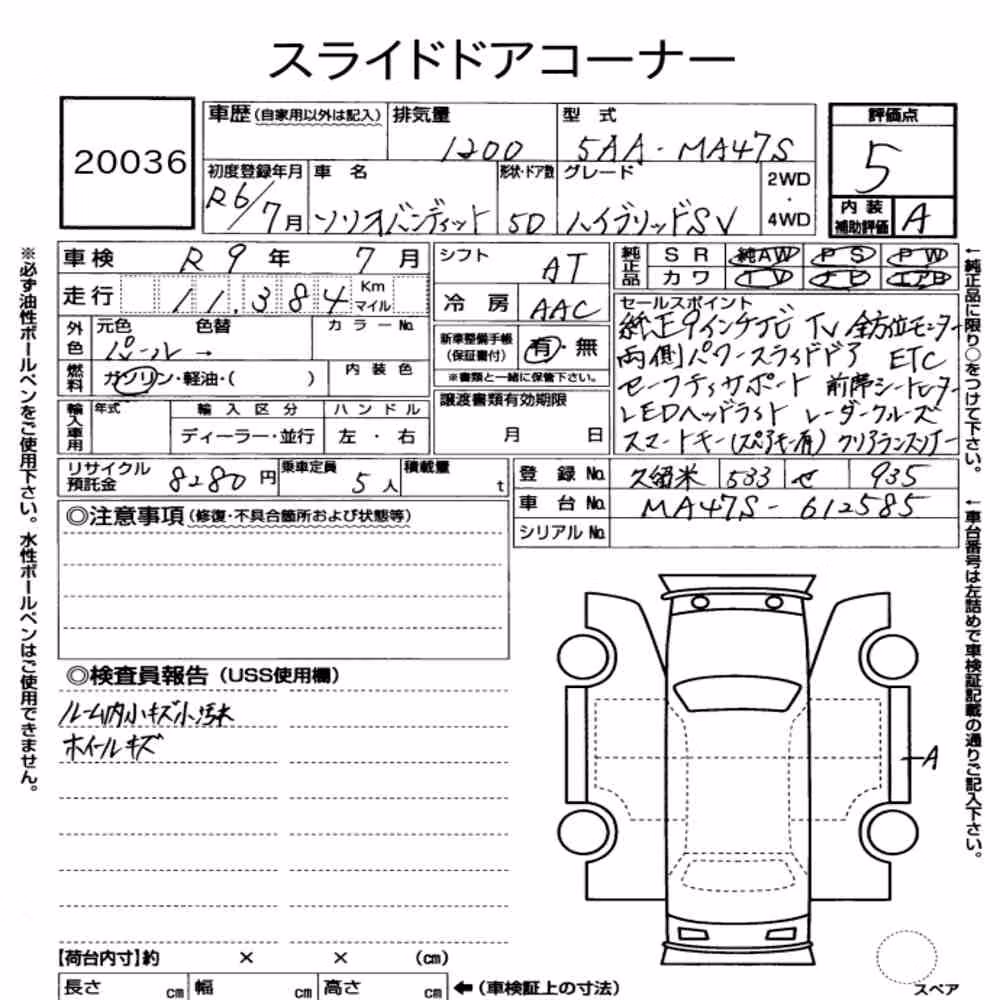 スライドドアコーナー
20036
車歴(自家用以外は記入) 排気量 1200 型式 5AA-MA47S
評価点 5
初度登録年月 R6/7月 車名 ソリオバンディット 形状・ドア数 5D グレード ハイブリッドSV 2WD・4WD
内装補助評価 A
車検 R9年 7月
走行 11,384 Km マイル
外色 元色 パール → 色替 カラーNo.
燃料 ガソリン・軽油・( ) 内装色
輸入車用 年式 輸入区分 ディーラー・並行 ハンドル 左・右
リサイクル預託金 8280円 乗車定員 5人 積載量 t
シフト AT
冷房 AAC
新車整備手帳(保証書付) 有・無
※書類と一緒に保管下さい。
譲渡書類有効期限 月 日
純正品 SR 純AW PS PW
カワ TV ナビ エアB
セールスポイント
純正9インチナビ TV 全方位モニター
両側パワースライドドア ETC
セーフティサポート 前席シートヒーター
LEDヘッドライト レーダークルーズ
スマートキー(スペアキー有) クリアランスソナー
登録No. 久留米 533 せ 935
車台No. MA47S-612585
シリアルNo.
◎注意事項(修復・不具合箇所および状態等)
◎検査員報告(USS使用欄)
ルーム内小キズ小汚れ
ホイールキズ
A
【荷台内寸】約 × × (cm)
長さ cm 幅 cm 高さ cm ←(車検証上の寸法)
スペア
※必ず油性ボールペンをご使用下さい。水性ボールペンはご使用できません。
←純正品に限り○をつけて下さい。
←車台番号は左詰めで車検証記載の通りご記入下さい。